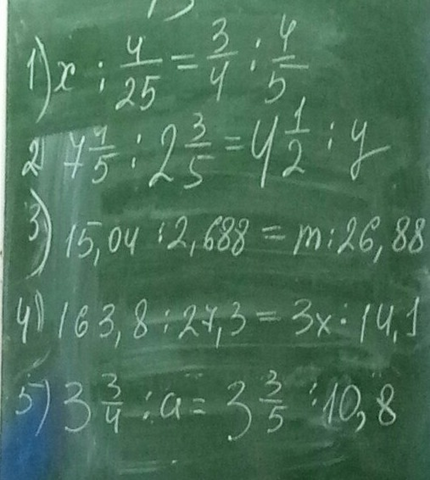 1) x : 4/25 = 3/4 : 4/5
2) 7 4/5 : 2 3/5 = 4 1/2 : y
3) 15,04 : 2,688 = m : 26,88
4) 163,8 : 27,3 = 3x : 14,1
5) 3 3/4 : a = 3 3/5 : 10,8